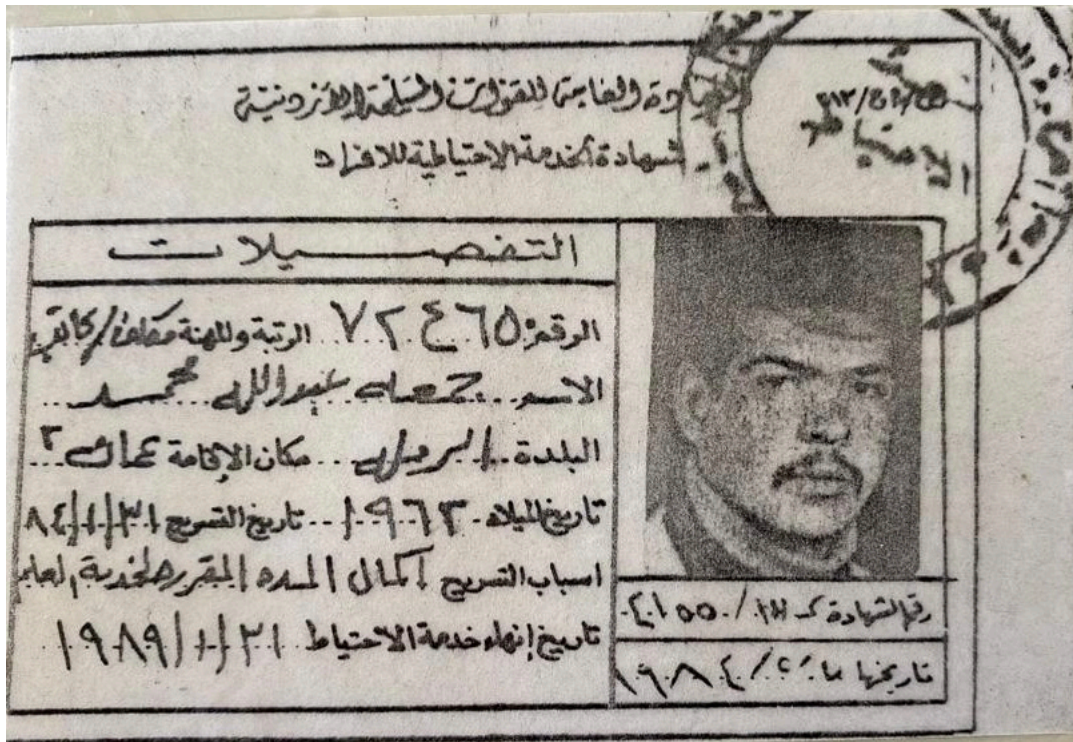 القيادة العامة للقوات المسلحة الأردنية
شهادة الخدمة الاحتياطية للافراد
التفصيلات
الرقم ٧٢٤٦٥ الرتبة والمهنة مكلف/
الاسم جمعه عبدالله محمد
البلدة مكان الإقامة عمان
تاريخ الميلاد ١٩٦٣ تاريخ التسريح ٨٤/١/٣١
اسباب التسريح اكمال المده المقرره لخدمة العلم
تاريخ إنهاء خدمة الاحتياط ١٩٨٩/١/٣١
رقم الشهادة
تاريخها